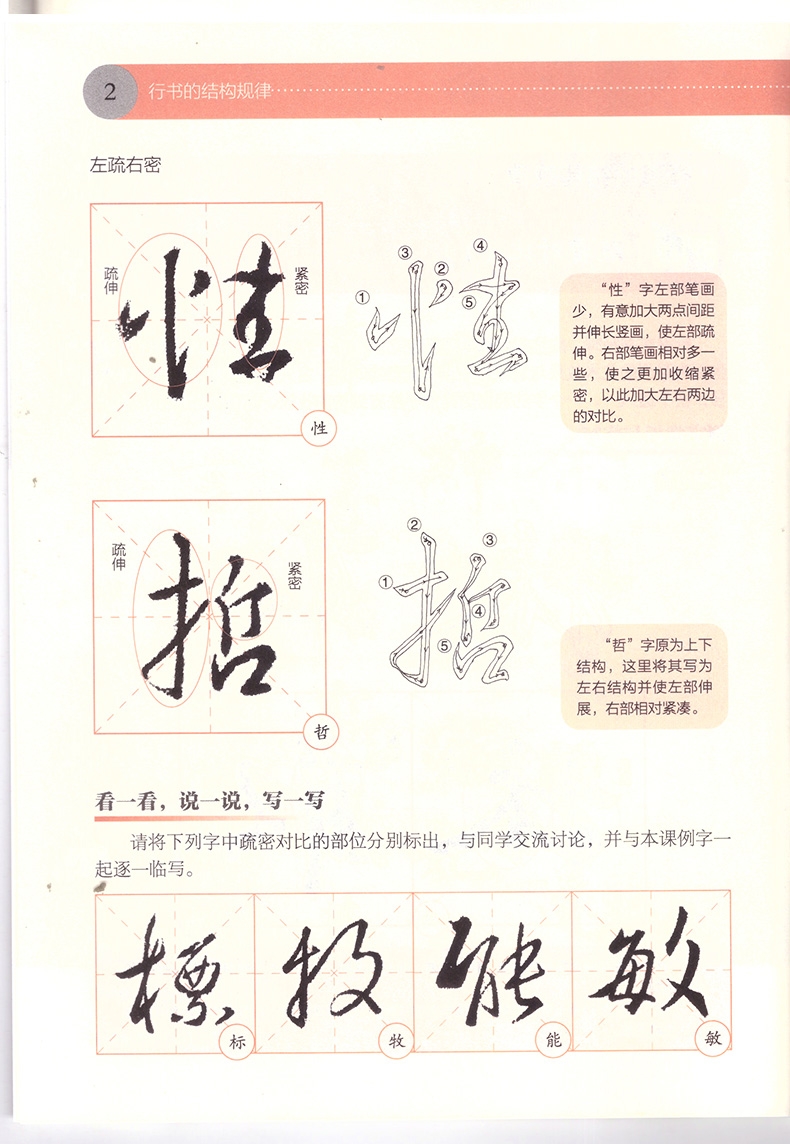 2 行书的结构规律
左疏右密
疏伸
性
紧密
性
③
②
①
④
⑤
“性”字左部笔画
少，有意加大两点间距
并伸长竖画，使左部疏
伸。右部笔画相对多一
些，使之更加收缩紧
密，以此加大左右两边
的对比。
疏伸
哲
紧密
哲
②
③
①
④
⑤
“哲”字原为上下
结构，这里将其写为
左右结构并使左部伸
展，右部相对紧凑。
看一看，说一说，写一写
请将下列字中疏密对比的部位分别标出，与同学交流讨论，并与本课例字一
起逐一临写。
標 牧 能 敏
标 牧 能 敏